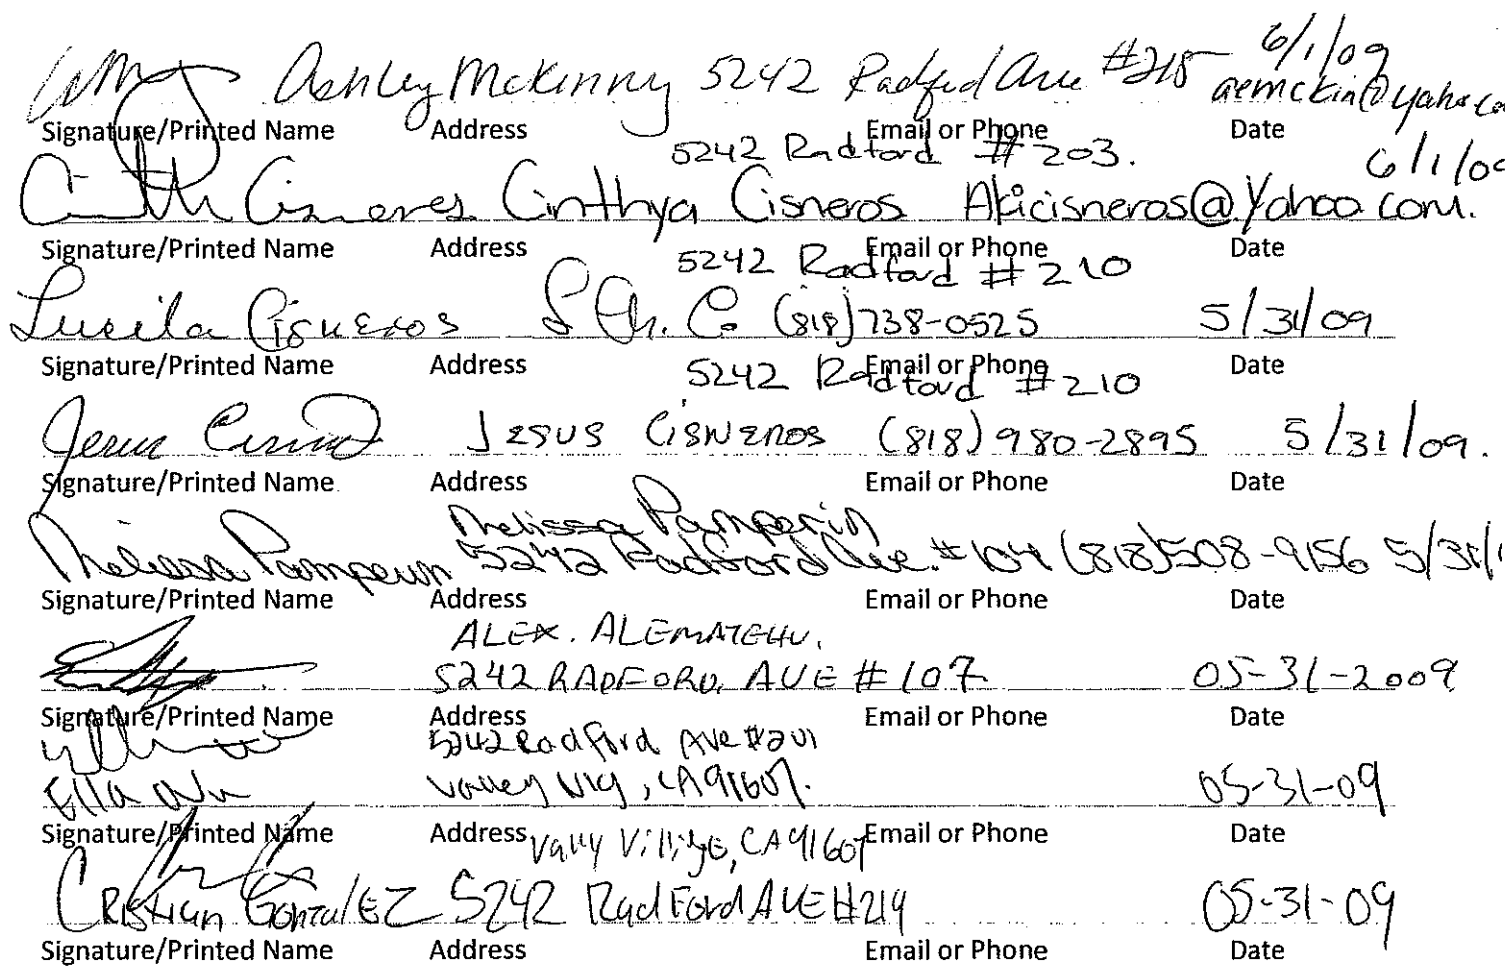 Ashley McKinny 5242 Radford Ave #215 6/1/09
aemckin@yahoo.co
Signature/Printed Name Address Email or Phone Date
5242 Radford #203. 6/1/09
Cinthya Cisneros Akicisneros@Yahoo.com.
Signature/Printed Name Address Email or Phone Date
5242 Radford #210
Lucila Cisneros (818)738-0525 5/31/09
Signature/Printed Name Address Email or Phone Date
5242 Radford #210
Jesus Cisneros (818)980-2895 5/31/09.
Signature/Printed Name Address Email or Phone Date
Melissa Pamperin
Melissa Pamperin 5242 Radford Ave. #104 (818)508-9156 5/31/
Signature/Printed Name Address Email or Phone Date
ALEX. ALEMAYEHU.
5242 RADFORD, AVE #107 05-31-2009
Signature/Printed Name Address Email or Phone Date
5242 Radford Ave #201
Ella Valley Vlg, CA 91607. 05-31-09
Signature/Printed Name Address Email or Phone Date
Vally Village, CA 91607
CRistian GonzalEZ 5242 RadFord AVE #219 05-31-09
Signature/Printed Name Address Email or Phone Date